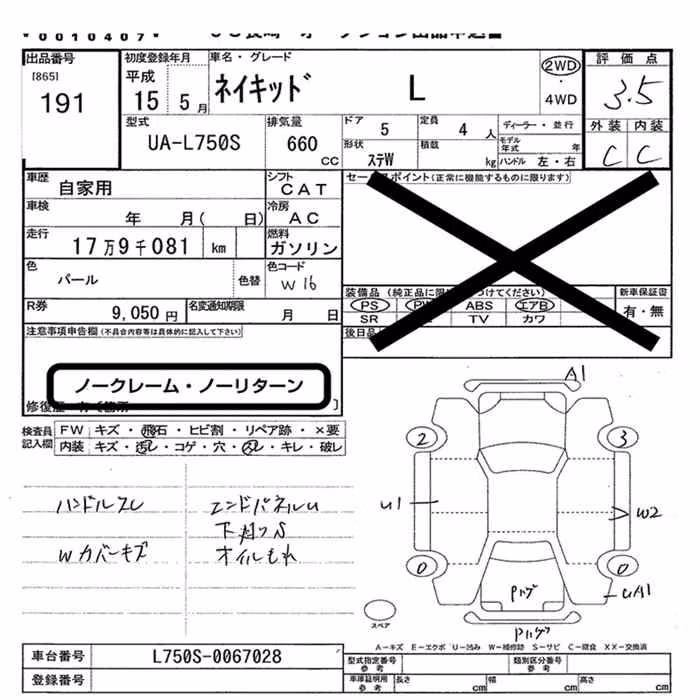 0010407
出品番号
[865]
191
初度登録年月
平成
15 5月
車名・グレード
ネイキッド L
2WD
・
4WD
評価点
3.5
外装 内装
C C
型式
UA-L750S
排気量
660
CC
ドア
5
定員
4 人
ディーラー・並行
形状
ステW
積載
kg
モデル年式 年
ハンドル 左・右
車歴
自家用
シフト
CAT
車検
年 月( 日)
冷房
AC
走行
17万9千081 km
燃料
ガソリン
色
パール
色替
色コード
W16
R券
9,050円
名変通知期限
月 日
セールスポイント(正常に機能するものに限ります)
装備品
(純正品に限
つけてください)
PS PW ABS エアB
SR TV カワ
新車保証書
有・無
後日品
注意事項申告欄(不具合内容等は具体的に記入して下さい)
ノークレーム・ノーリターン
検査員記入欄
FW キズ・飛石・ヒビ割・リペア跡・×要
内装 キズ・汚レ・コゲ・穴・スレ・キレ・破レ
ハンドルスレ
Wカバーキズ
エンドパネルU
下廻りS
オイルもれ
A1
2 3
U1 W2
0 0
UA1
スペア
A-キズ E-エクボ U-凹み W-補修跡 S-サビ C-腐食 XX-交換済
車台番号 L750S-0067028
登録番号
型式指定番号
参考
類別区分番号
参考
車庫証明用
参考
長さ cm
幅 cm
高さ cm